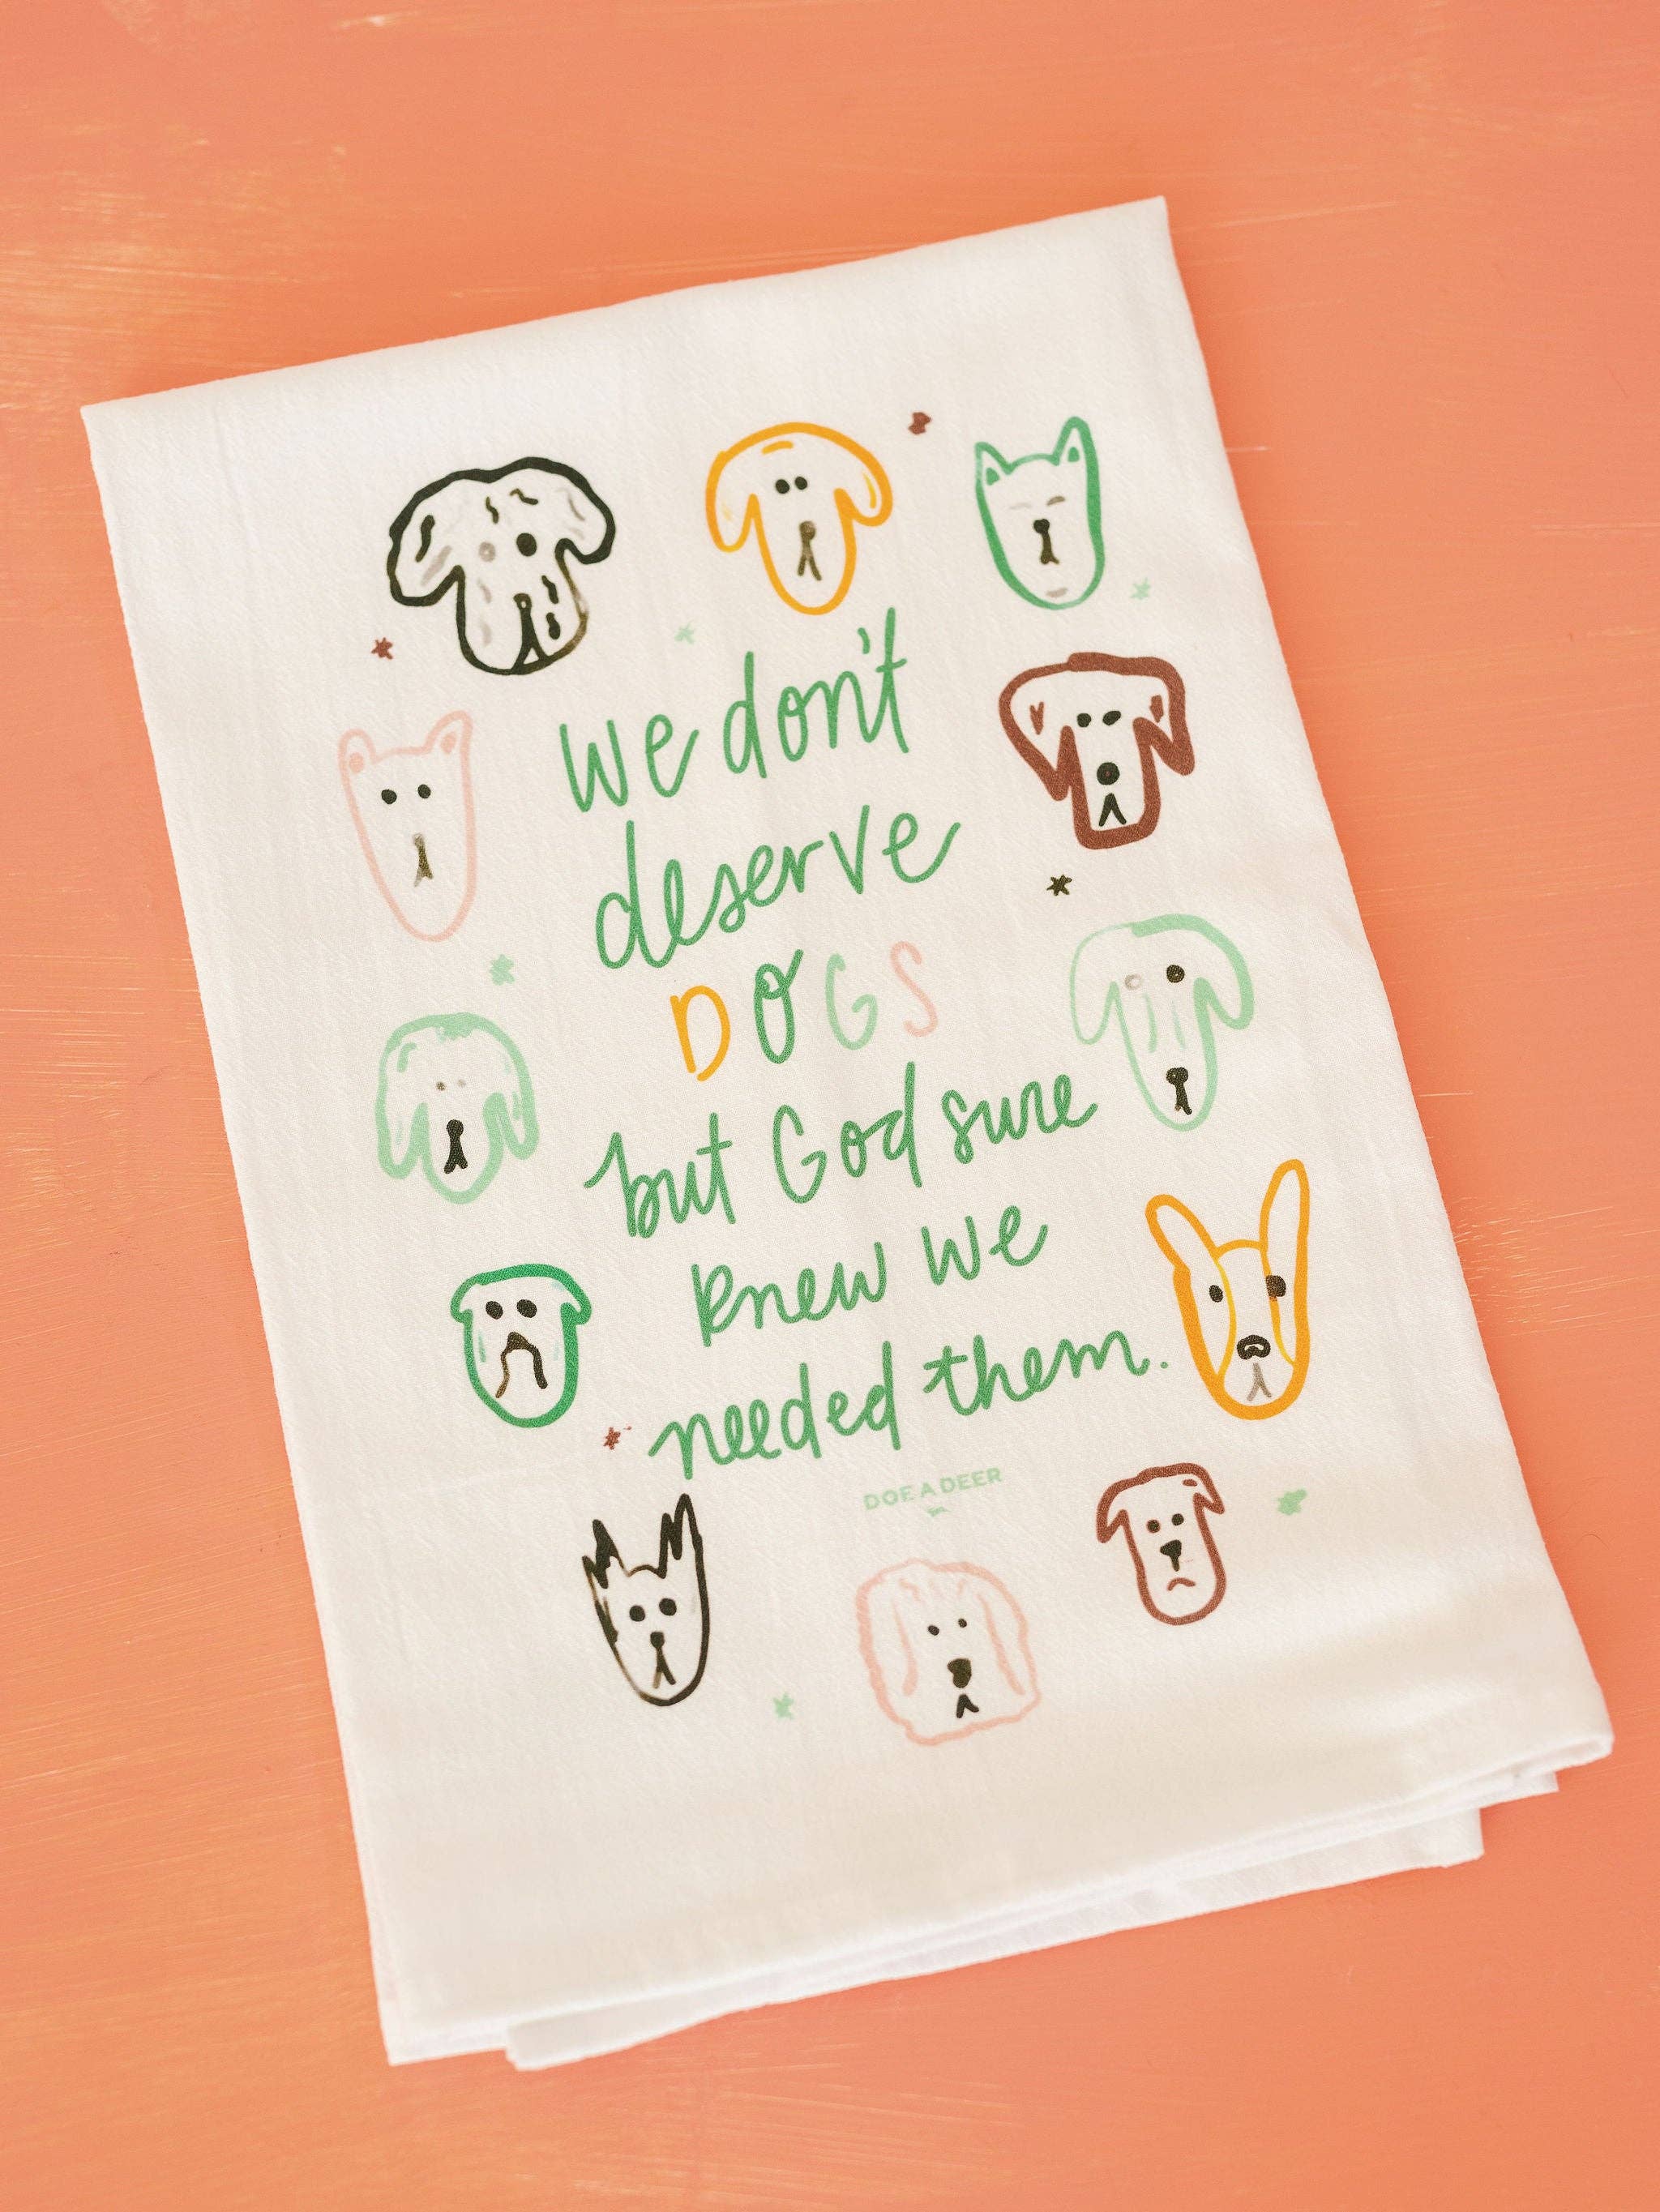 we don't
deserve
DOGS
but God sure
knew we
needed them.
DOE A DEER